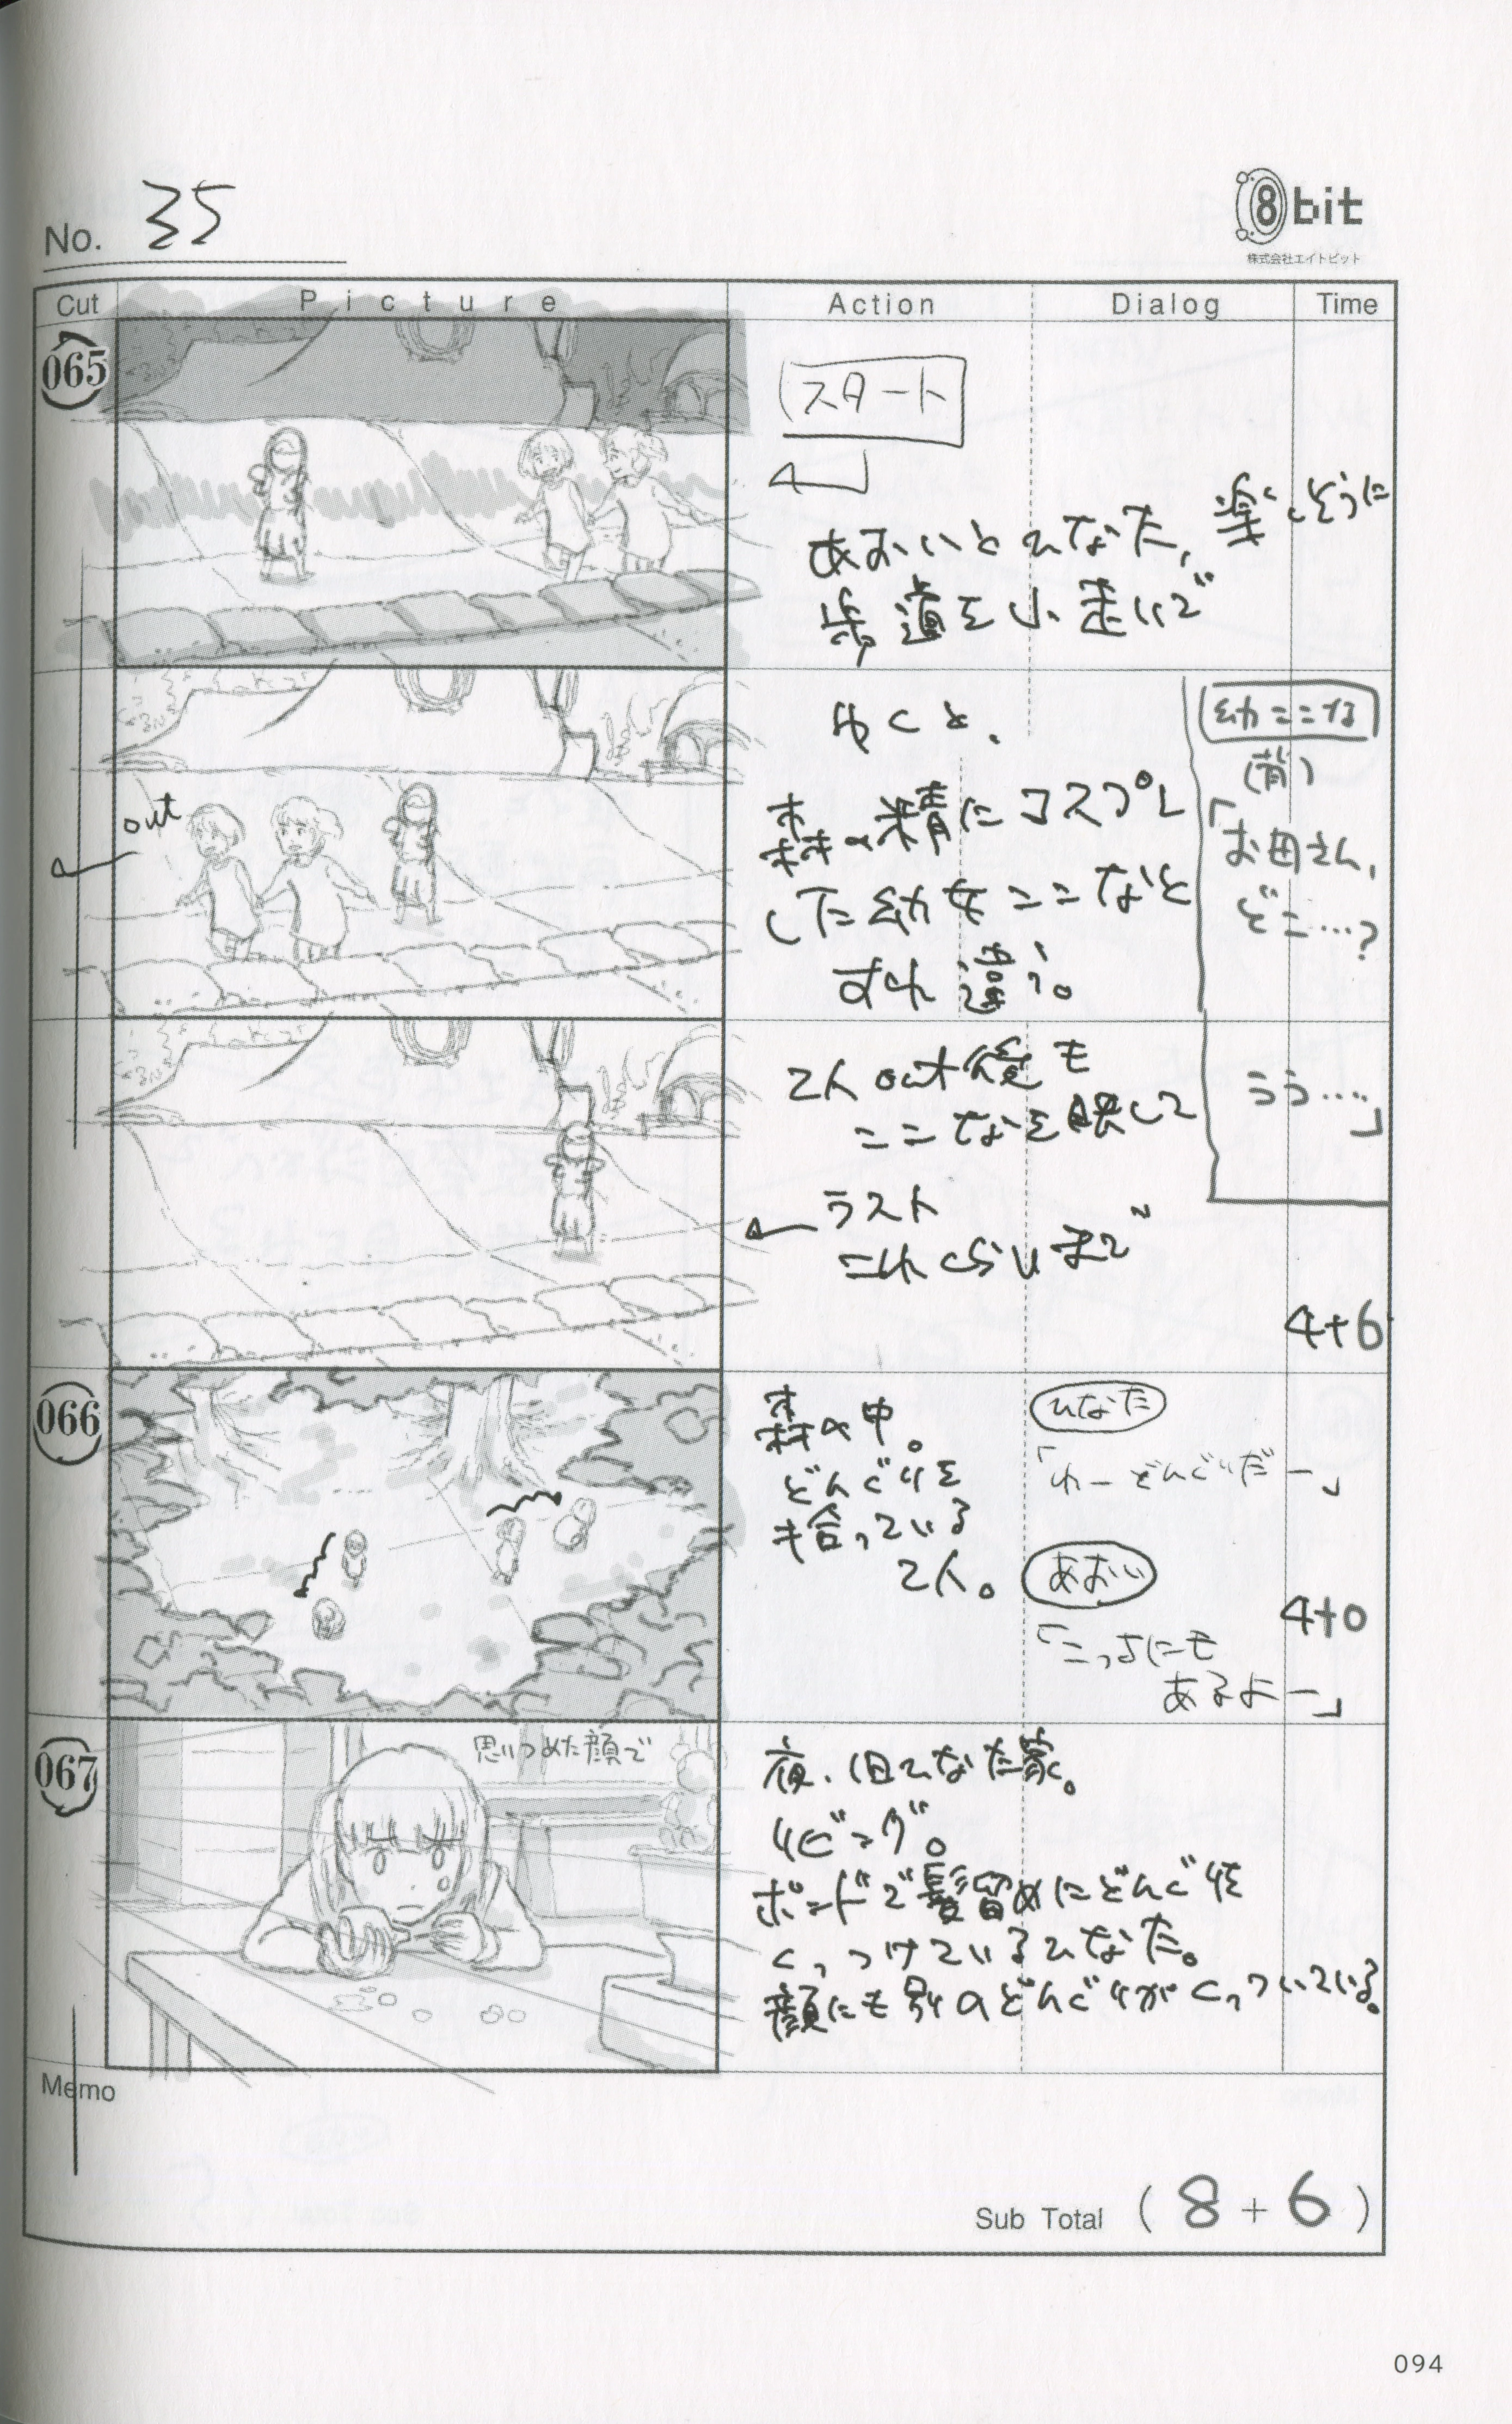 No. 35
8bit
株式会社エイトビット
Cut Picture Action Dialog Time
065
スタート
あおいとひなた、楽しそうに
歩道を小走りで
ゆくと、
森の精にコスプレ
した幼女ここなと
すれ違う。
幼ここな
「お母さん、
どこ…?
out
2人out後も
ここなを映して
うう…」
ラスト
これくらいまで
4+6
066
森の中。
どんぐりを
拾っている
2人。
ひなた
「わーどんぐりだー」
あおい
「こっちにも
あるよー」
4+0
067
思いつめた顔で
夜、旧ひなた家。
リビング。
ボンドで髪留めにどんぐりを
くっつけているひなた。
顔にも別のどんぐりがくっついている。
Memo
Sub Total ( 8 + 6 )
094